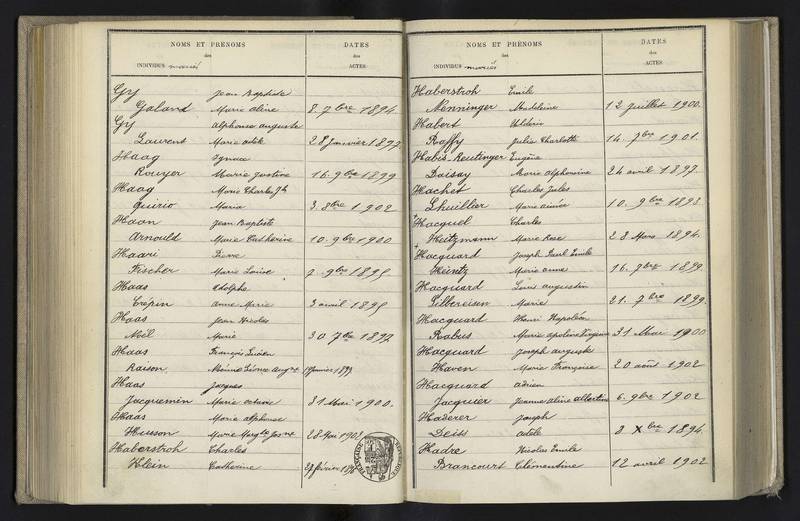 NOMS ET PRÉNOMS
des
INDIVIDUS mariés
DATES
des
ACTES
Gy Jean Baptiste
Galand Marie aline 8. 7bre 1894
Gy Alphonse auguste
Laurent Marie adèle 28 janvier 1897
Haag Ignace
Rouyer Marie Justine 16. 9bre 1899
Haag Marie Charles Jh
Quirio Maria 3. 8bre 1902
Haan Jean Baptiste
Arnould Marie Catherine 10. 9bre 1900
Haari Pierre
Fischer Marie Louise 7. 9bre 1895
Haas Adolphe
Crépin Anne Marie 3 avril 1895
Haas Jean Nicolas
Noël Marie 30 7bre 1897
Haas François Lucien
Raison
Haas Jacques
Jacquemin Marie octavie 31 Mai 1900.
Haas Marie alphonse
Husson Marie 28 Mai 1902
Haberstroh Charles
Klein Catherine 29 février 1896
NOMS ET PRÉNOMS
des
INDIVIDUS mariés
DATES
des
ACTES
Haberstroh Emile
Nenninger Madeleine 12 juillet 1900.
Habert Ulderic
Raffy Julie Charlotte 14. 7bre 1901.
Habis-Reutinger Eugène
Doisay Marie alphonsine 24 avril 1897.
Hachet Charles Jules
Lhuillier Marie aimée 10. 9bre 1893
Hacquel Charles
Heitzmann Marie Rose 28 Mars 1894.
Hacquard Joseph Paul Emile
Heinitz Marie anna 16. 7bre 1899.
Hacquard Louis augustin
Silbereisen Marie 21. 7bre 1899.
Hacquard Henri Napoléon
Rabus Marie apoline Virginie 31 Mai 1900
Hacquard Joseph auguste
Haven Marie Françoise 20 août 1902
Hacquard adrien
Jacquier Jeanne aline albertine 6. 9bre 1902
Haderer Joseph
Deiss adèle 8 Xbre 1894.
Hadre Nicolas Emile
Brancourt Clémentine 12 avril 1902